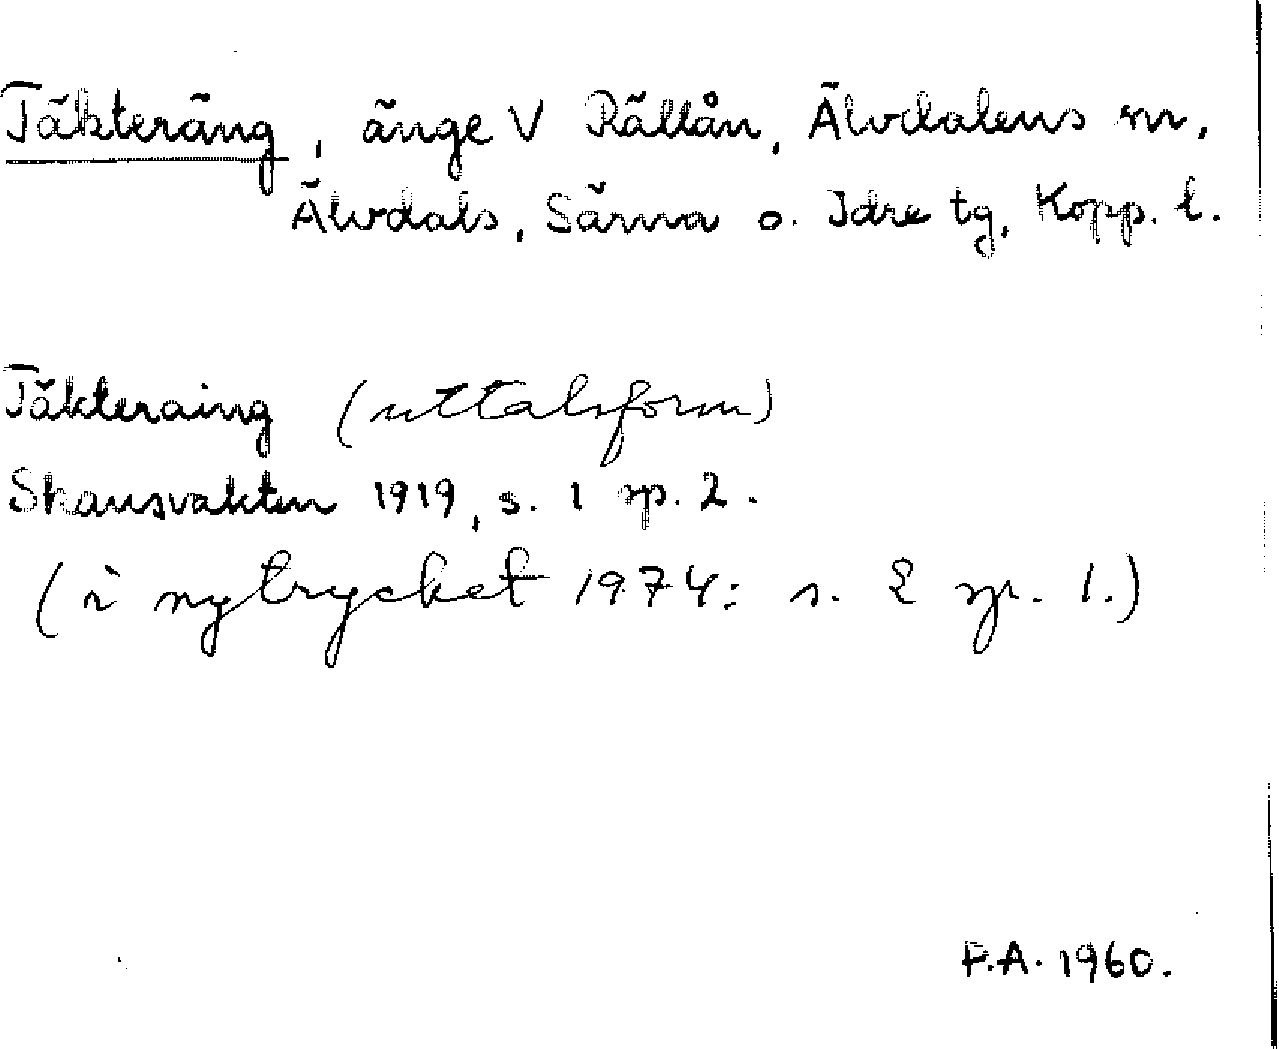 Täkteräng, änge V Rällån, Älvdalens sn,
Älvdals, Särna o. Idre tg, Kopp. l.
Täkteraing (uttalsform)
Skansvakten 1919, s. 1 sp. 2.
(i nytrycket 1974: s. 2 sp. 1.)
P.A. 1960.